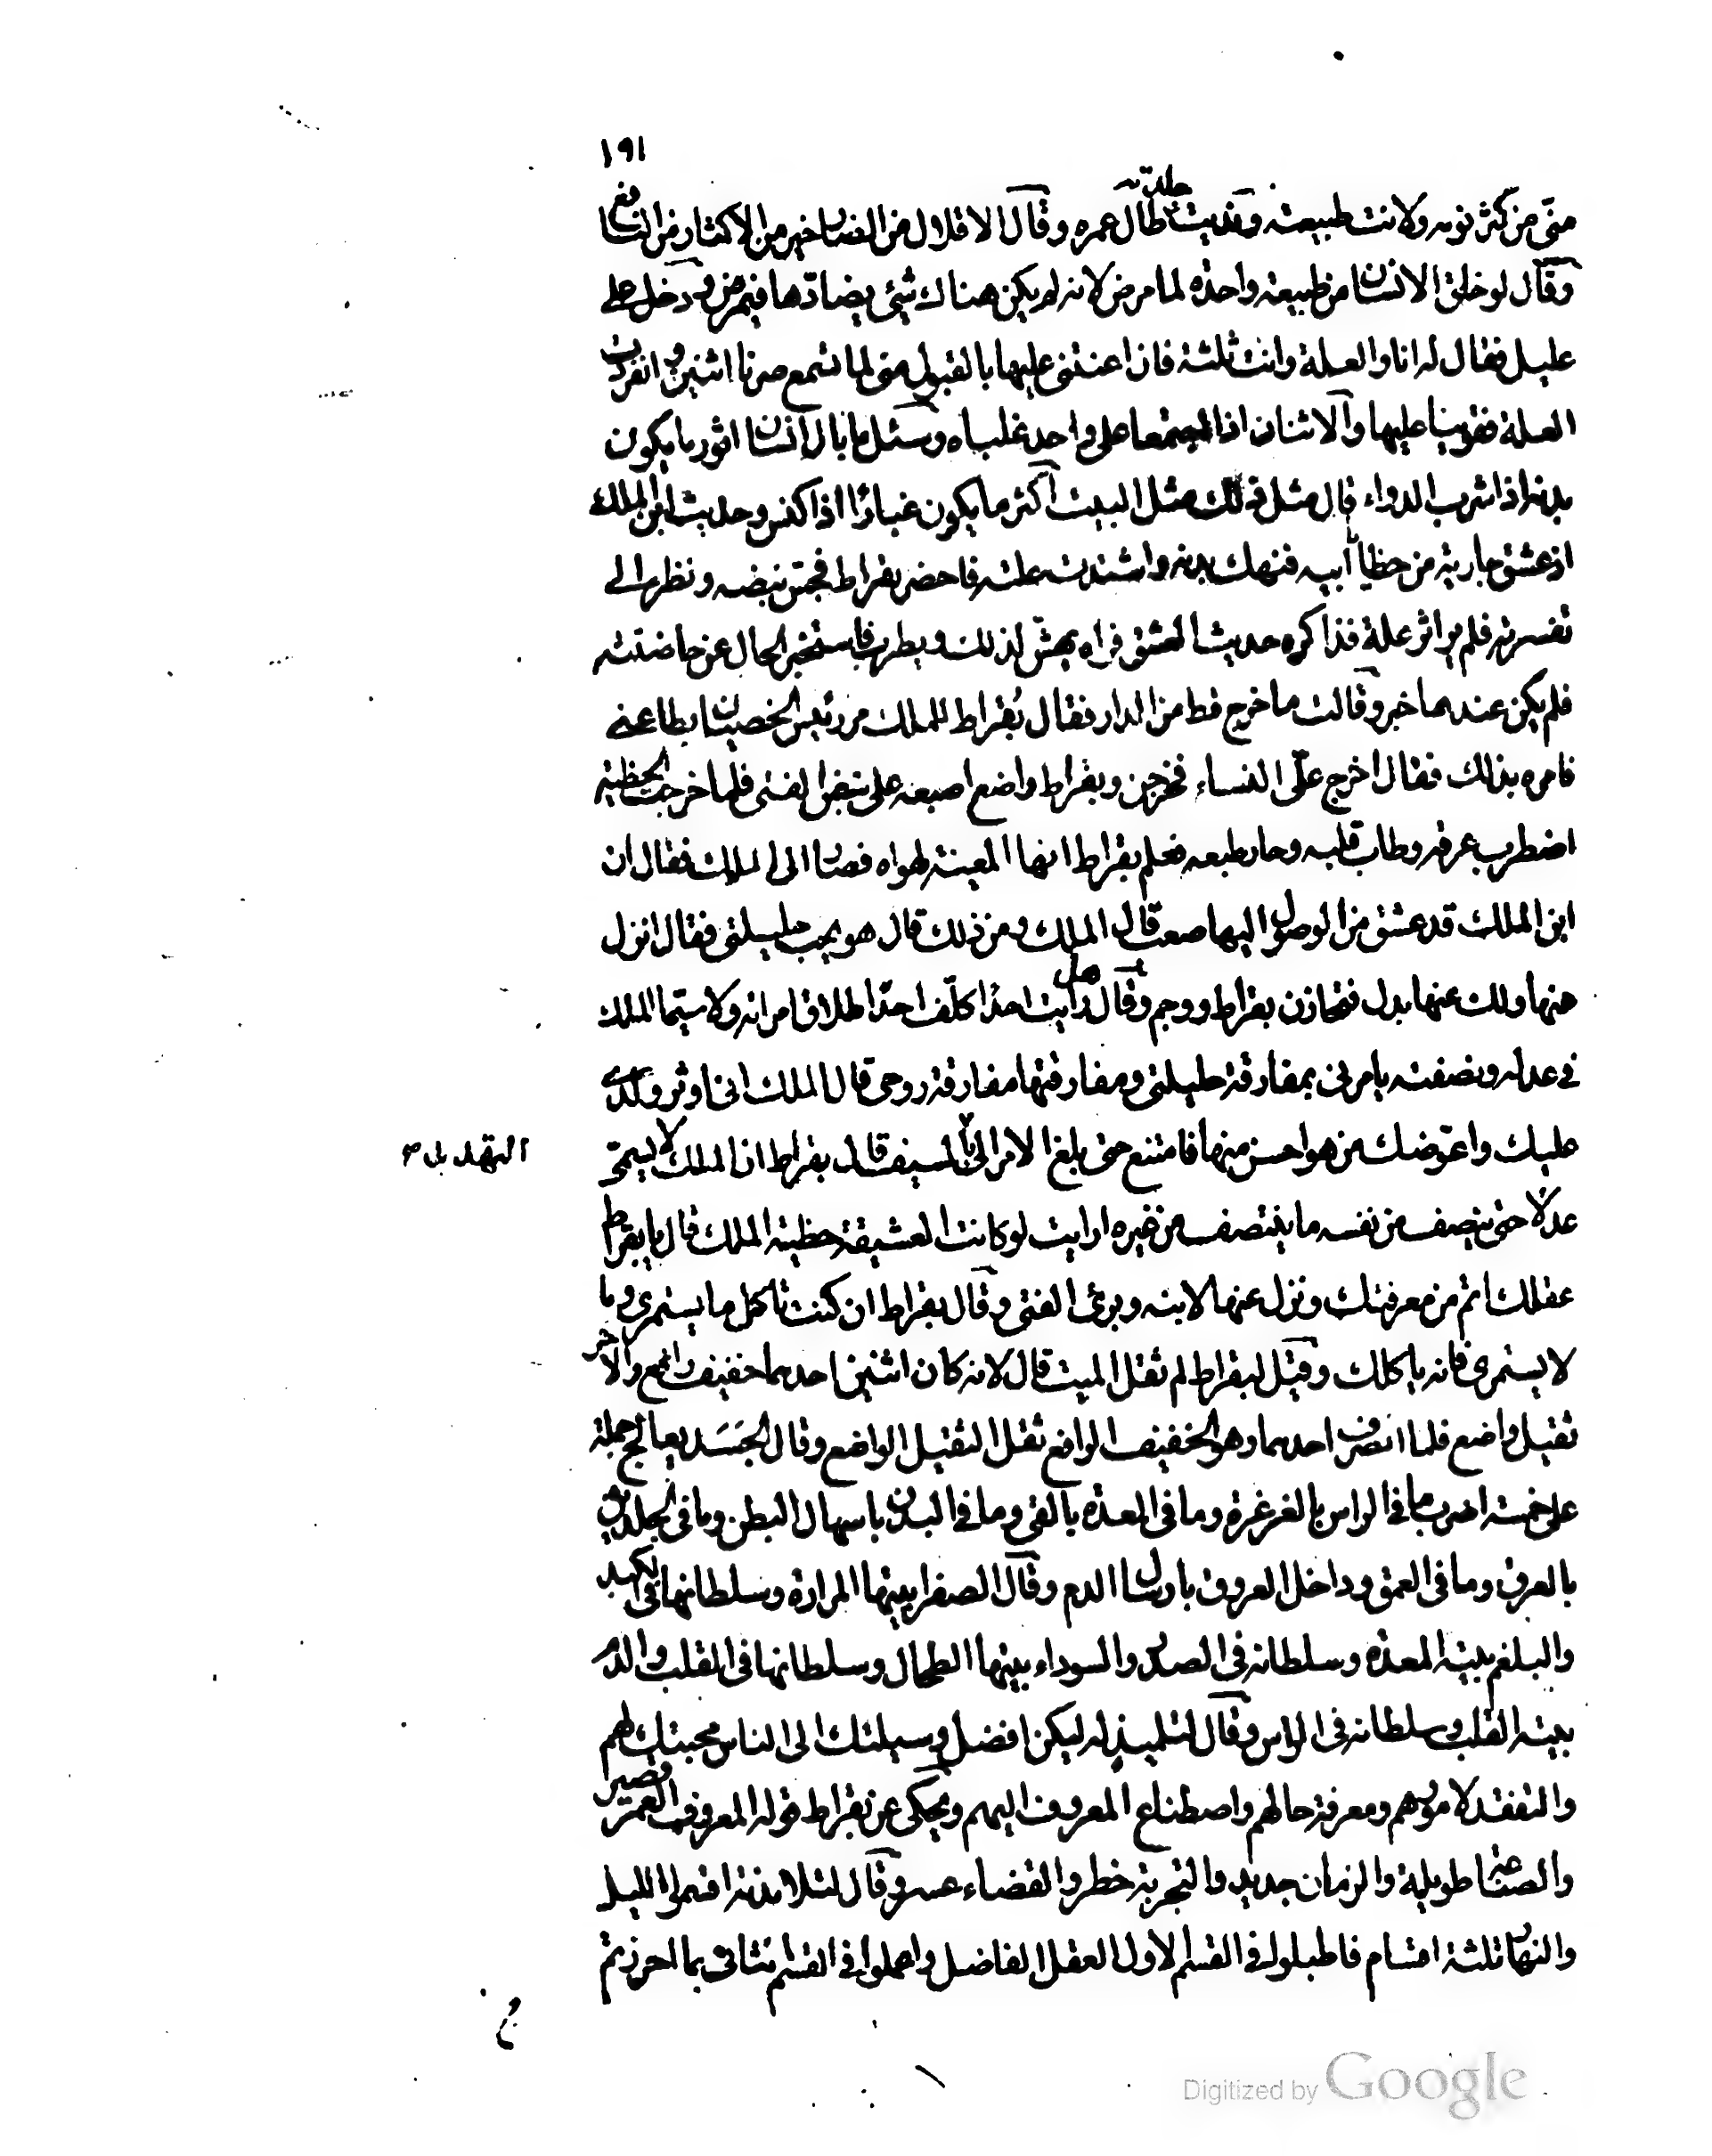 ١٩١
منى من كثر نومه ولانت طبيعته ونديت جلدته طال عمره وقال الاقلال من الضار خير من الاكثار من النافع
وقال لو خلق الانسان من طبيعة واحدة لما مرض لانه لم يكن هناك شيئ يضادها فيمرض ودخل على
عليل فقال له انا والعلة وانت ثلثة فان اعنتنى عليها بالقبول منى لما تسمع صرنا اثنين وانفردت
العلة فقوينا عليها والاثنان اذا اجتمعا على واحد غلباه وسئل ما بال الانسان اثور ما يكون
بدنه اذا شرب الدواء قال مثل ذلك مثل البيت اكثر ما يكون غبارا اذا كنس وحديث ابن الملك
اذ عشق جارية من حظايا ابيه فنهك بدنه واشتدت علته فاحضر بقراط فجس نبضه ونظر الى
تفسرته فلم ير اثر علة فذاكره حديث العشق فراه يهش لذلك ويطرب فاستخبر الحال عن حاضنته
فلم يكن عندها خبر وقالت ما خرج قط من الدار فقال بقراط للملك مر رئيس الخصيان بطاعتى
فامره بذلك فقال اخرج على النساء فخرجن وبقراط واضع اصبعه على نبض الفتى فلما خرجت الحظية
اضطرب عرقه وطار قلبه وحار طبعه فعلم بقراط انها المعينة لهواه فصار الى الملك فقال ان
ابن الملك قد عشق من الوصول اليها صعب قال الملك ومن ذلك قال هو يحب حليلتى فقال انزل
عنها ولك عنها بدل فتحازن بقراط ووجم وقال هل رايت احدا كلف احدا طلاق امراته ولا سيما الملك
فى عدله ونصفته يامرنى بمفارقة حليلتى ومفارقتها مفارقة روحى قال الملك انى اوثر ولدى
عليك واعوضك من هو احسن منها فامتنع حتى بلغ الامر الى التهديد بالسيف قال بقراط ان الملك لا يسمى
عدلا حتى ينصف من نفسه ما ينتصف من غيره ارايت لو كانت العشيقة حظية الملك قال يا بقراط
عقلك اتم من معرفتك ونزل عنها لابنه وبرئ الفتى وقال بقراط ان كنت تاكل ما يستمرى وما
لا يستمرى فانه ياكلك وقيل لبقراط لم ثقل الميت قال لانه كان اثنين احدهما خفيف رافع والاخر
ثقيل واضع فلما انصرف احدهما وهو الخفيف الرافع ثقل الثقيل الواضع وقال الجسد يعالج جملة
على خمسة اضرب ما فى الراس بالغرغرة وما فى المعدة بالقى وما فى البدن باسهال البطن وما فى الجلدين
بالعرق وما فى العمق وداخل العروق بارسال الدم وقال الصفرا بيتها المرارة وسلطانها فى الكبد
والبلغم بيته المعدة وسلطانه فى الصدر والسوداء بيتها الطحال وسلطانها فى القلب والدم
بيته القلب وسلطانه فى الراس وقال لتلميذ له ليكن افضل وسيلتك الى الناس محبتك لهم
والتفقد لامورهم ومعرفة حالهم واصطناع المعروف اليهم ويحكى عن بقراط قوله المعروف العمر قصير
والصناعة طويلة والزمان جديد والتجربة خطر والقضاء عسر وقال لتلامذته اقسموا الليل
والنهار ثلثة اقسام فاطلبوا فى القسم الاول العقل الفاضل واعملوا فى القسم الثانى بما احرزتم